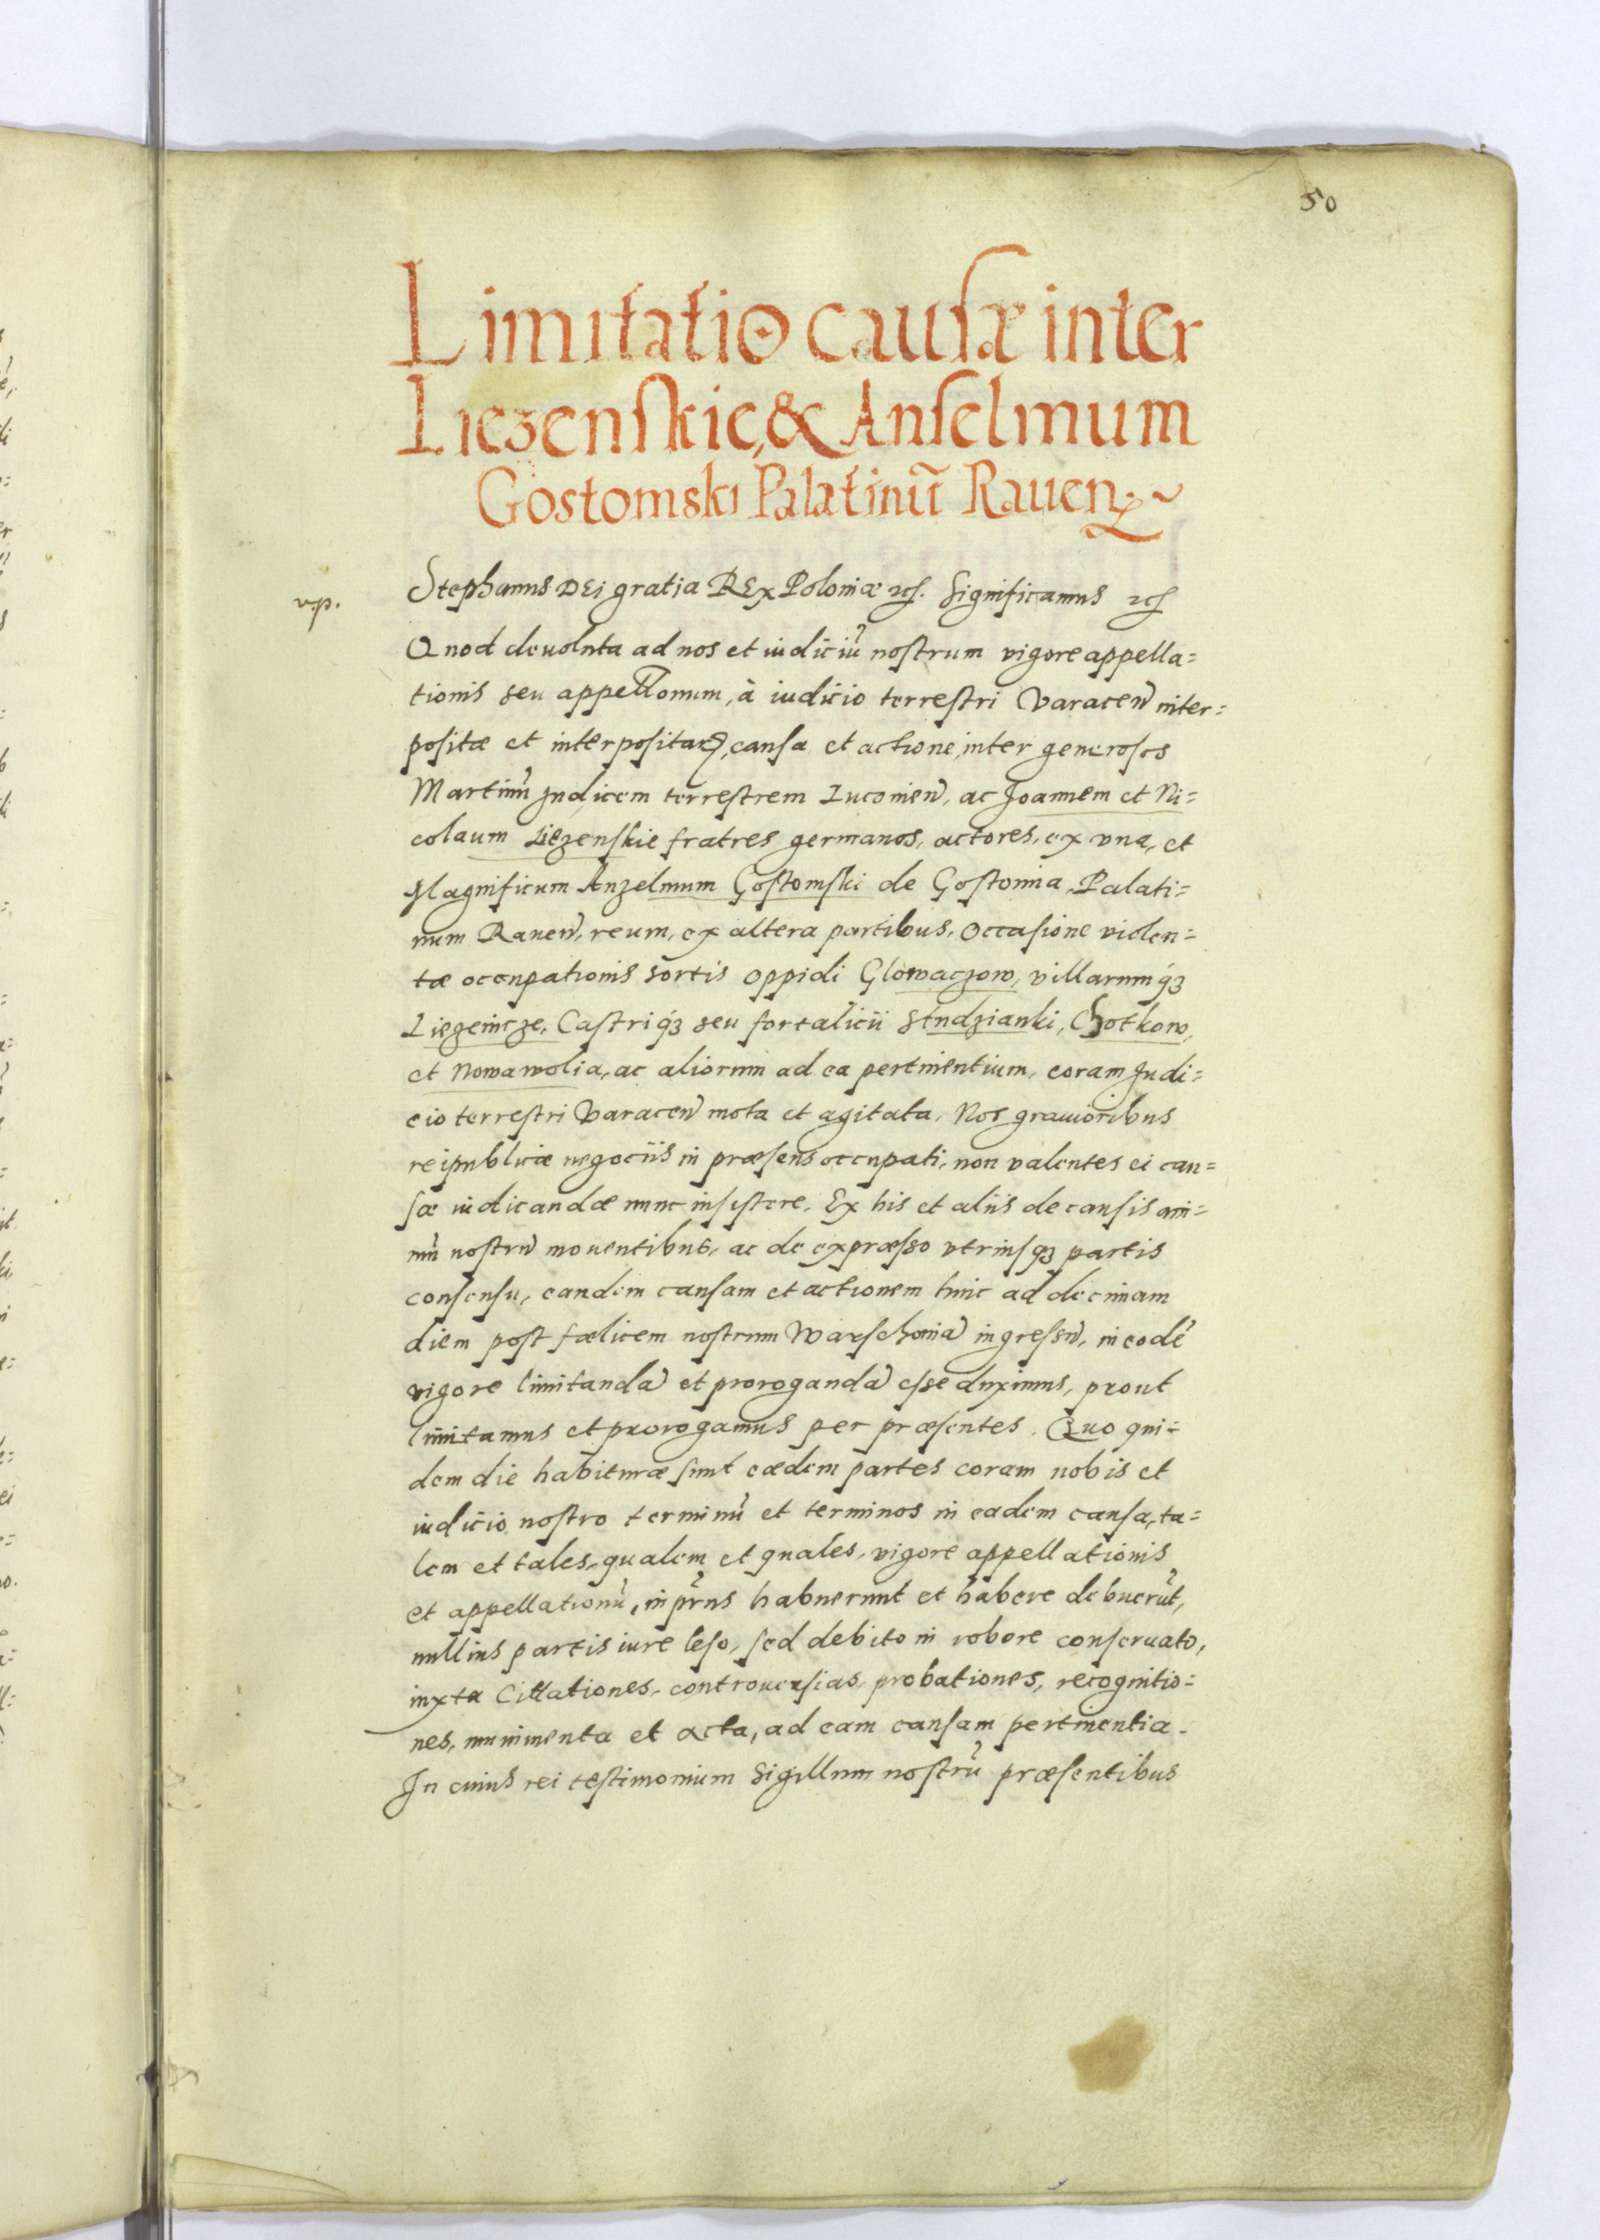 50
Limitatio causæ inter
Liezenskie, & Anselmum
Gostomski Palatinū Rauen̄
vp.
Stephanus DEi gratia REx Poloniæ etc. Significamus etc
Quod deuoluta ad nos et iudiciū nostrum vigore appella=
tionis seu appellonum, à iudicio terrestri Varacen̄ inter=
positæ et interpositarꝝ, causa et actione inter generosos
Martinū Judicem terrestrem Lucouien̄, ac Joannem et Ni=
colaum Liezenskie fratres germanos, actores, ex vna, et
Magnificum Anzelmum Gostomski de Gostomia, Palati=
num Rauen̄, reum, ex altera partibus, occasione violen=
tæ occupationis sortis oppidi Glowaczow, villarumqꝫ
Liezeincze, Castriqꝫ seu fortalicii Studzianki, Chotkow,
et Nowawolia, ac aliorum ad ea pertinentium, coram Judi=
cio terrestri Varacen̄ mota et agitata, Nos grauioribus
reipublicæ negociis in præsens occupati, non valentes ei cau=
sæ iudicandæ nunc insistere, Ex his et aliis de causis ani=
mū nostrū mouentibus, ac de expræsso vtriusqꝫ partis
consensu, eandem causam et actionem hinc ad decimam
diem post fœlicem nostrum Warschouiā ingressū, in eodē
vigore limitandā et prorogandā esse duximus, prout
limitamus et prorogamus per præsentes. Quo qui=
dem die habituræ sunt eædem partes coram nobis et
iudicio nostro terminū et terminos in eadem causa, ta=
lem et tales, qualem et quales, vigore appellationis
et appellationū, inpr̄ns habuerunt et habere debuerūt,
nullius partis iure leso, sed debito in robore conseruato,
iuxta Cittationes, controuersias, probationes, recognitio=
nes, munimenta et acta, ad eam causam pertinentia.
In cuius rei testimonium Sigillum nostrū præsentibus